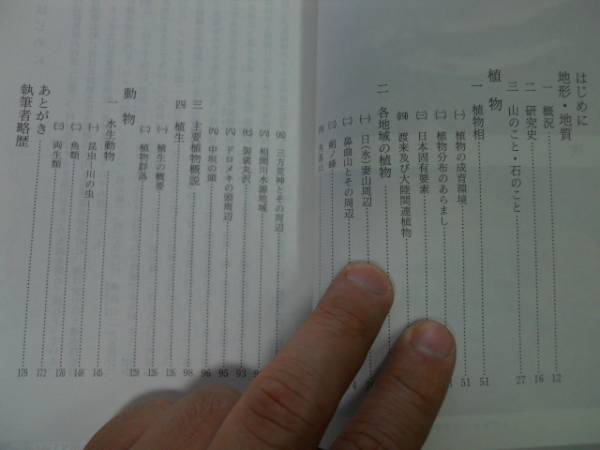 はじめに
地形・地質
一 概況 12
二 研究史 16
三 山のこと・石のこと 27
植物
一 植物相 51
㈠ 植物の成育環境 51
㈡ 植物分布のあらまし
㈢ 日本固有要素
㈣ 渡来及び大陸関連植物
二 各地域の植物
㈠ 日(氷)妻山周辺
㈡ 鼻曲山とその周辺
㈢ 剣ノ峰
㈤ 三方荒神とその周辺
㈥ 相間川水源地域
㈦ 御蔵丸沢 93
㈧ ドロメキの頭周辺 95
㈨ 中坂の頭 96
三 主要植物概説 98
四 植生 126
㈠ 植生の概要 126
㈡ 植物群落 129
動物
一 水生動物 145
㈠ 昆虫・川の虫 145
㈡ 魚類 148
㈢ 両生類 170
あとがき 172
執筆者略歴 179